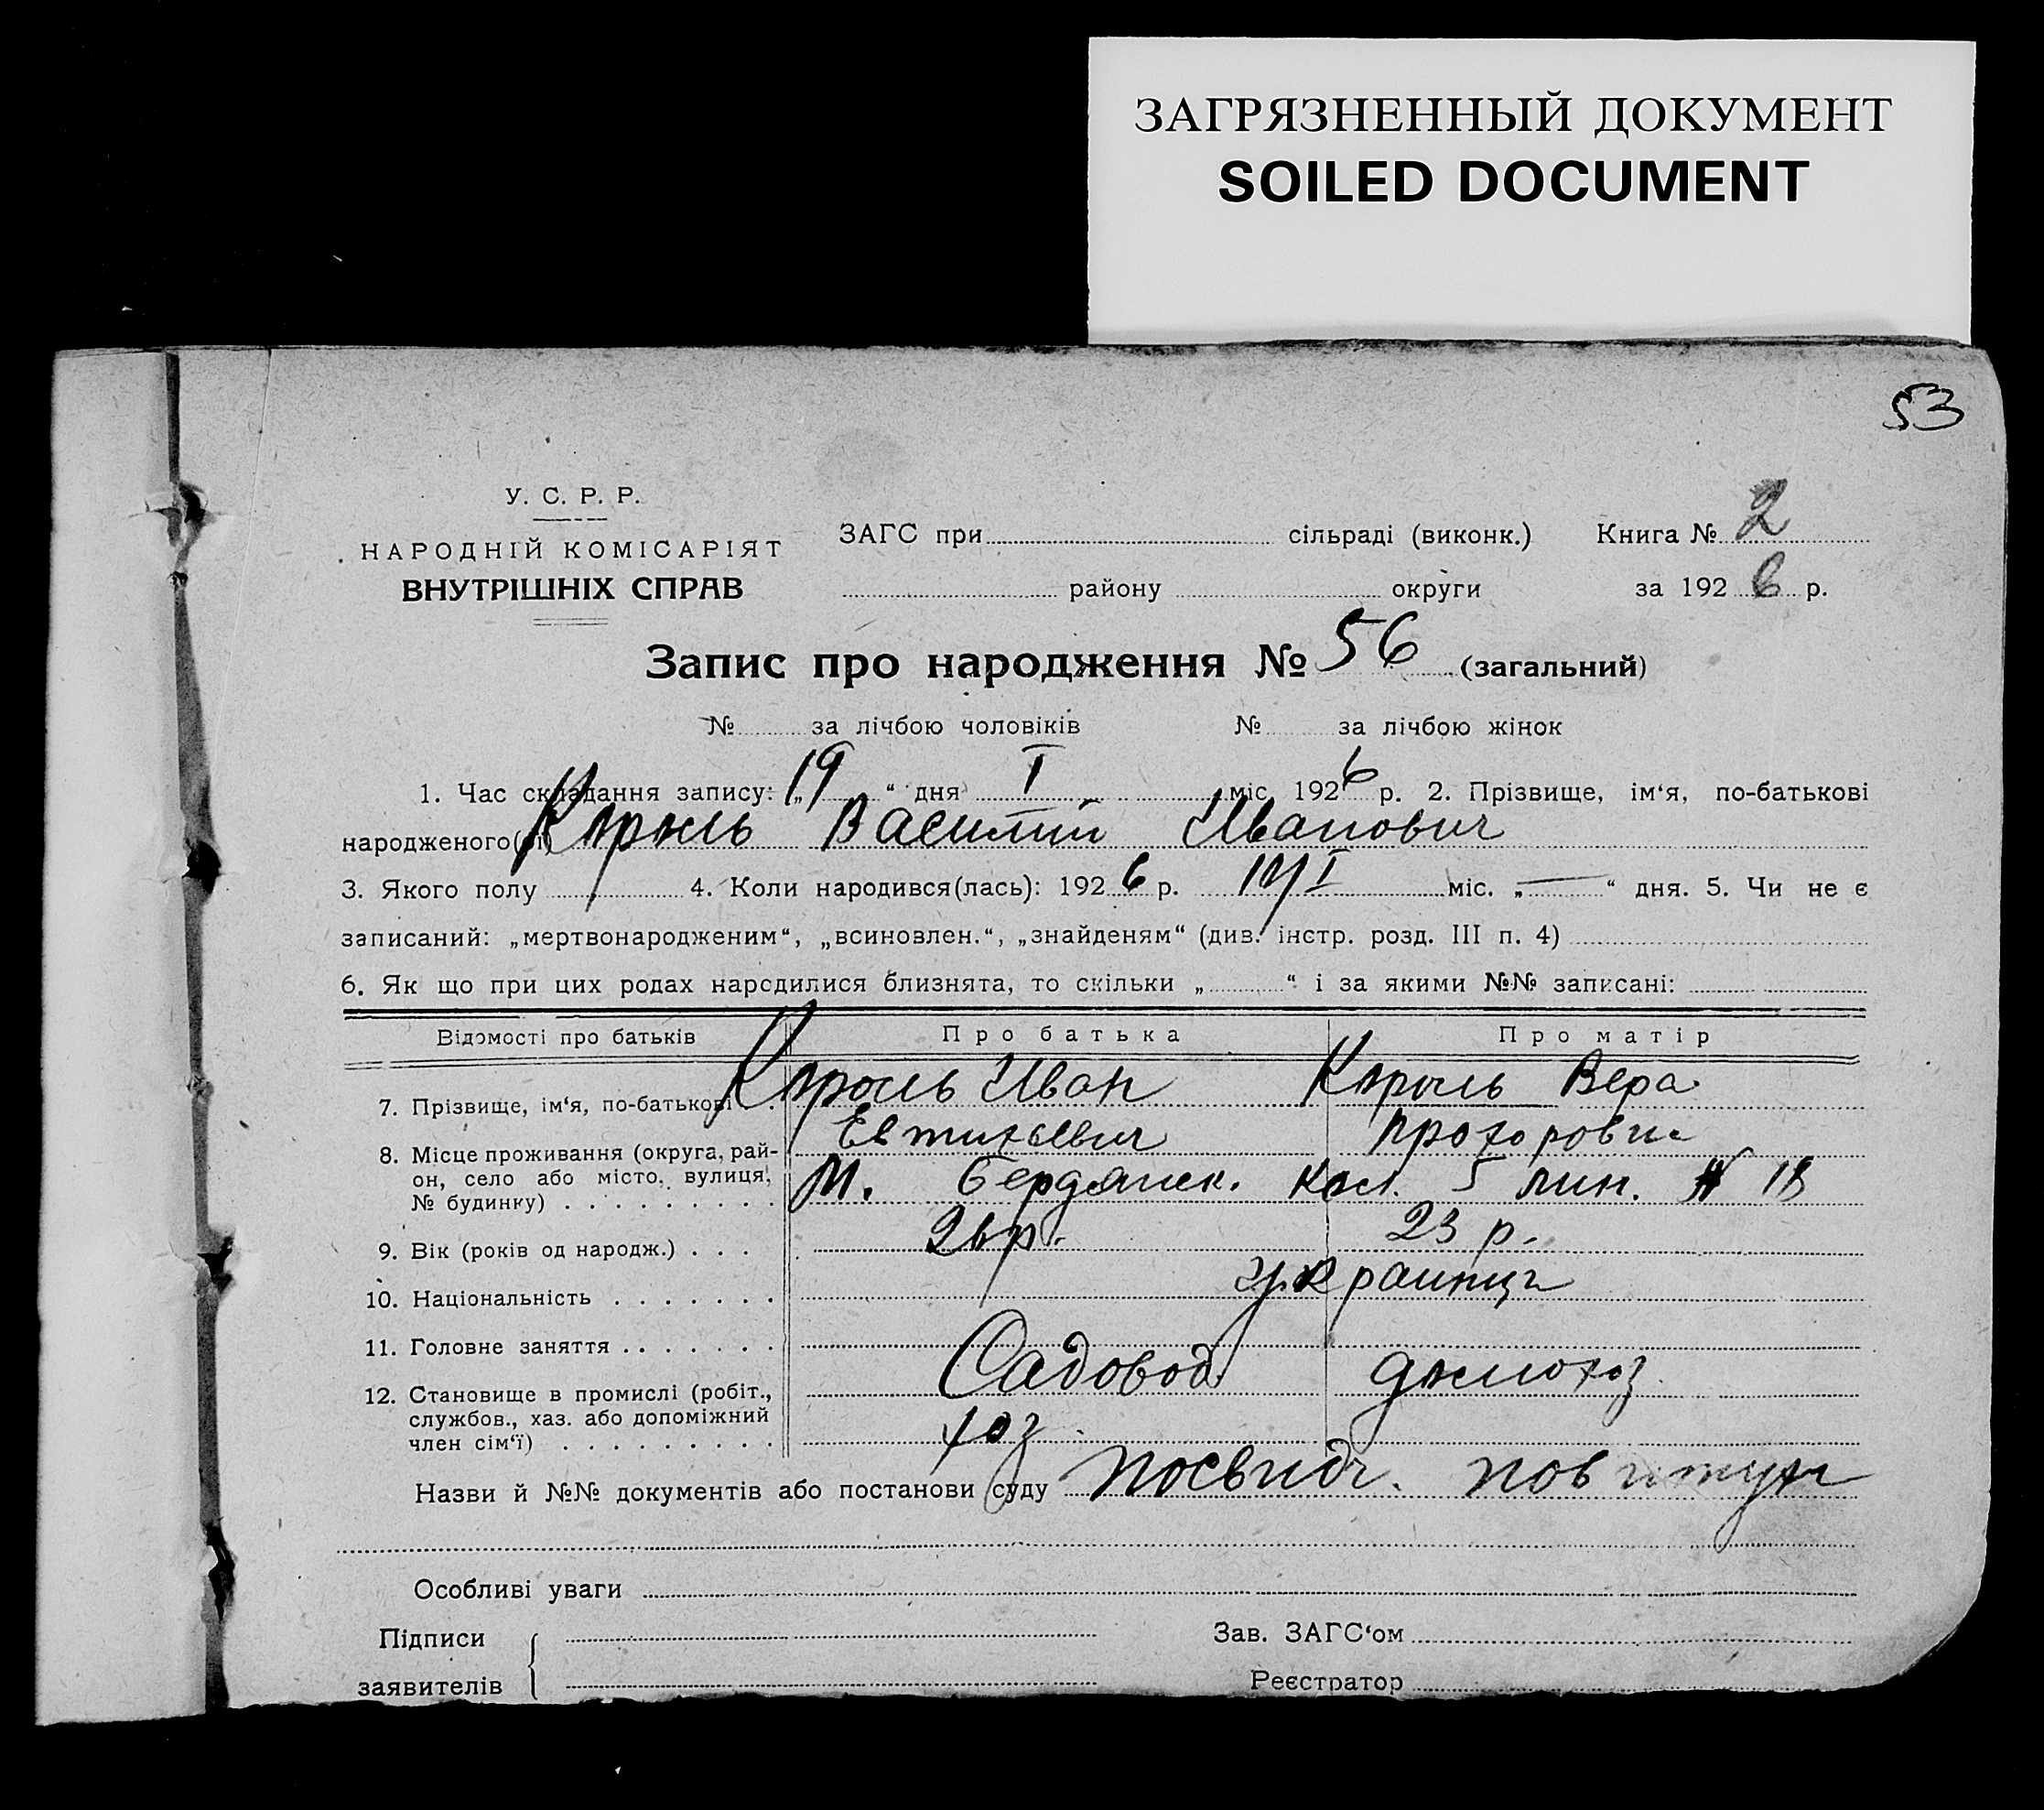 ЗАГРЯЗНЕННЫЙ ДОКУМЕНТ
SOILED DOCUMENT
53
У. С. Р. Р.
НАРОДНІЙ КОМІСАРІЯТ
ВНУТРІШНІХ СПРАВ
ЗАГС при сільраді (виконк.) Книга № 2
району округи за 1926 р.
Запис про народження № 56 (загальний)
№ за лічбою чоловіків № за лічбою жінок
1. Час складання запису: „19“ дня I міс. 1926 р. 2. Прізвище, ім‘я, по-батькові
народженого(ої) Король Василий Иванович
3. Якого полу 4. Коли народився(лась): 1926 р. I міс. „—“ дня. 5. Чи не є
записаний: „мертвонародженим“, „всиновлен.“, „знайденям“ (див. інстр. розд. III п. 4)
6. Як що при цих родах народилися близнята, то скільки „ “ і за якими №№ записані:
Відомості про батьків Про батька Про матір
7. Прізвище, ім‘я, по-батькові Король Иван Король Вера
Евтихьевич Прохоровна
8. Місце проживання (округа, рай-
он, село або місто, вулиця,
№ будинку) М. Бердянск. Кол. 5 лин. № 18
9. Вік (років од народж.) 26 р. 23 р.
10. Національність українці
11. Головне заняття Садовод домохоз
12. Становище в промислі (робіт.,
службов., хаз. або допоміжний
член сім‘ї) хоз
Назви й №№ документів або постанови суду посвидч. повитухи
Особливі уваги
Підписи
заявителів
Зав. ЗАГС‘ом
Реєстратор